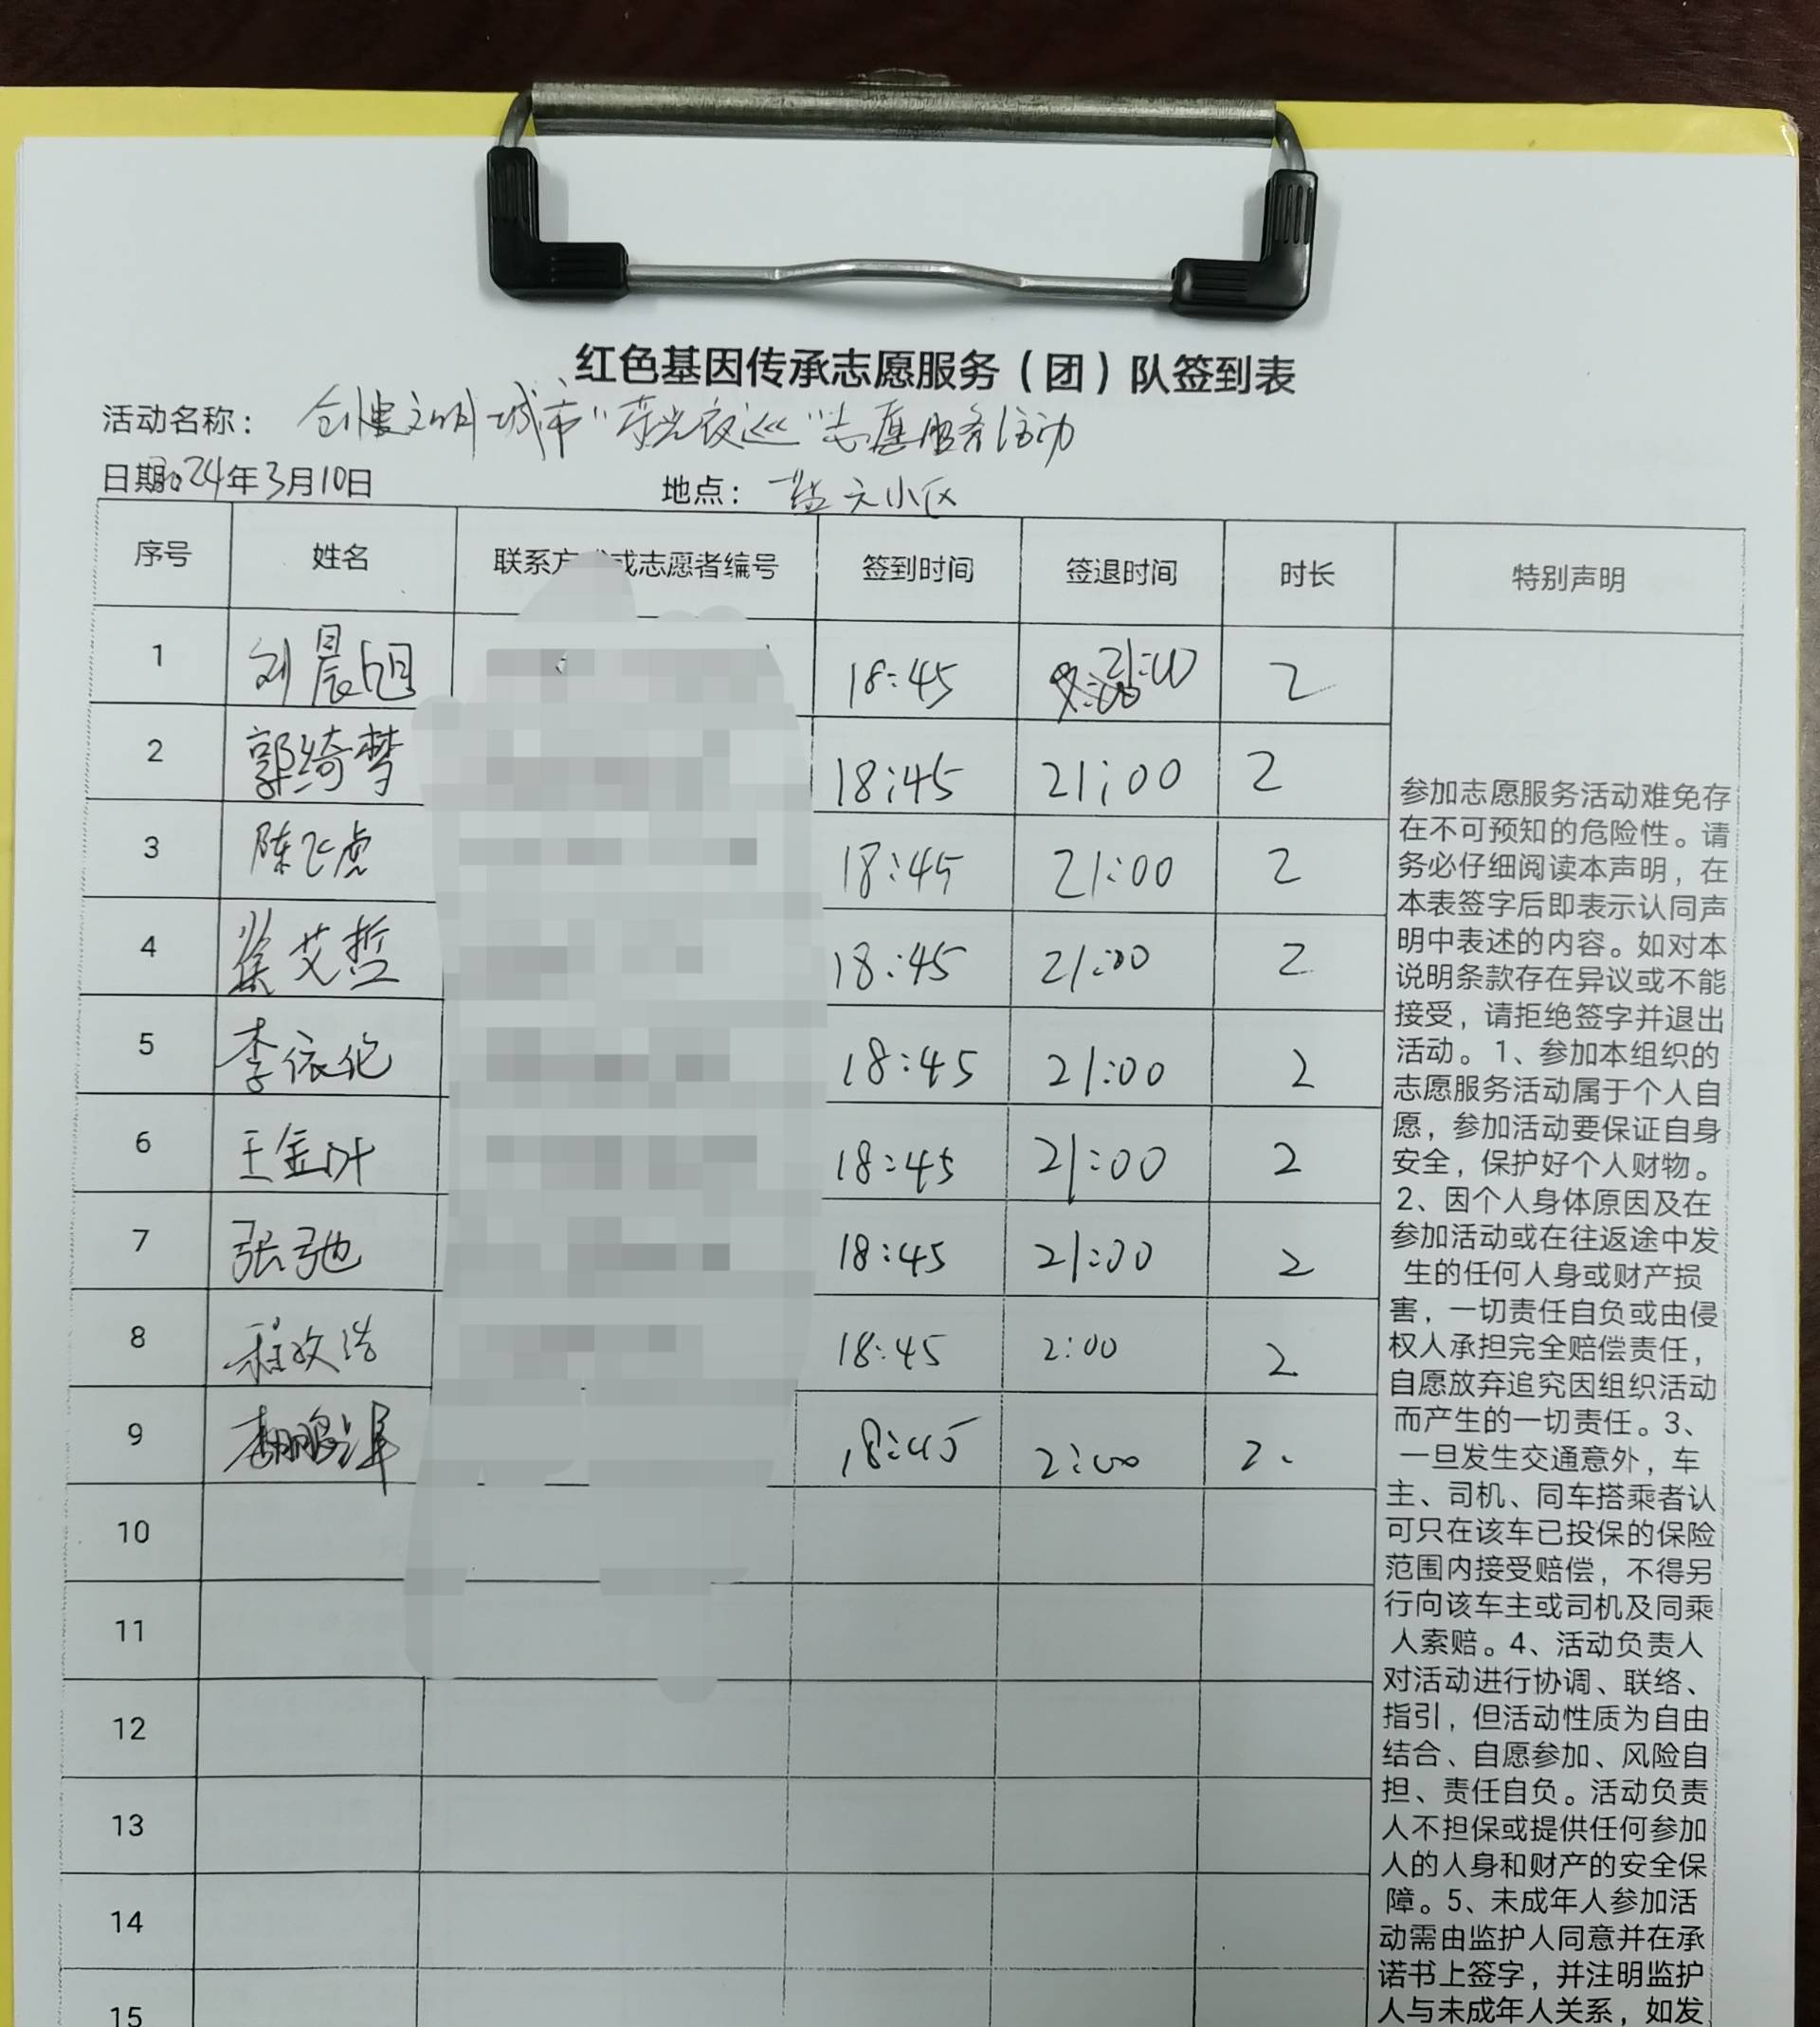 红色基因传承志愿服务（团）队签到表
活动名称： 创建文明城市"荧光夜巡"志愿服务活动
日期：2024年3月10日 地点： 小区
序号 姓名 联系方式或志愿者编号 签到时间 签退时间 时长 特别声明
1 刘晨旭 18:45 21:00 2
2 郭绮梦 18:45 21:00 2
3 陈飞虎 18:45 21:00 2
4 艾哲 18:45 21:00 2
5 李依伦 18:45 21:00 2
6 王金叶 18:45 21:00 2
7 张弛 18:45 21:00 2
8 程 浩 18:45 2:00 2
9 18:45 2:00 2.
10
11
12
13
14
15
参加志愿服务活动难免存
在不可预知的危险性。请
务必仔细阅读本声明，在
本表签字后即表示认同声
明中表述的内容。如对本
说明条款存在异议或不能
接受，请拒绝签字并退出
活动。1、参加本组织的
志愿服务活动属于个人自
愿，参加活动要保证自身
安全，保护好个人财物。
2、因个人身体原因及在
参加活动或在往返途中发
生的任何人身或财产损
害，一切责任自负或由侵
权人承担完全赔偿责任，
自愿放弃追究因组织活动
而产生的一切责任。3、
一旦发生交通意外，车
主、司机、同车搭乘者认
可只在该车已投保的保险
范围内接受赔偿，不得另
行向该车主或司机及同乘
人索赔。4、活动负责人
对活动进行协调、联络、
指引，但活动性质为自由
结合、自愿参加、风险自
担、责任自负。活动负责
人不担保或提供任何参加
人的人身和财产的安全保
障。5、未成年人参加活
动需由监护人同意并在承
诺书上签字，并注明监护
人与未成年人关系，如发